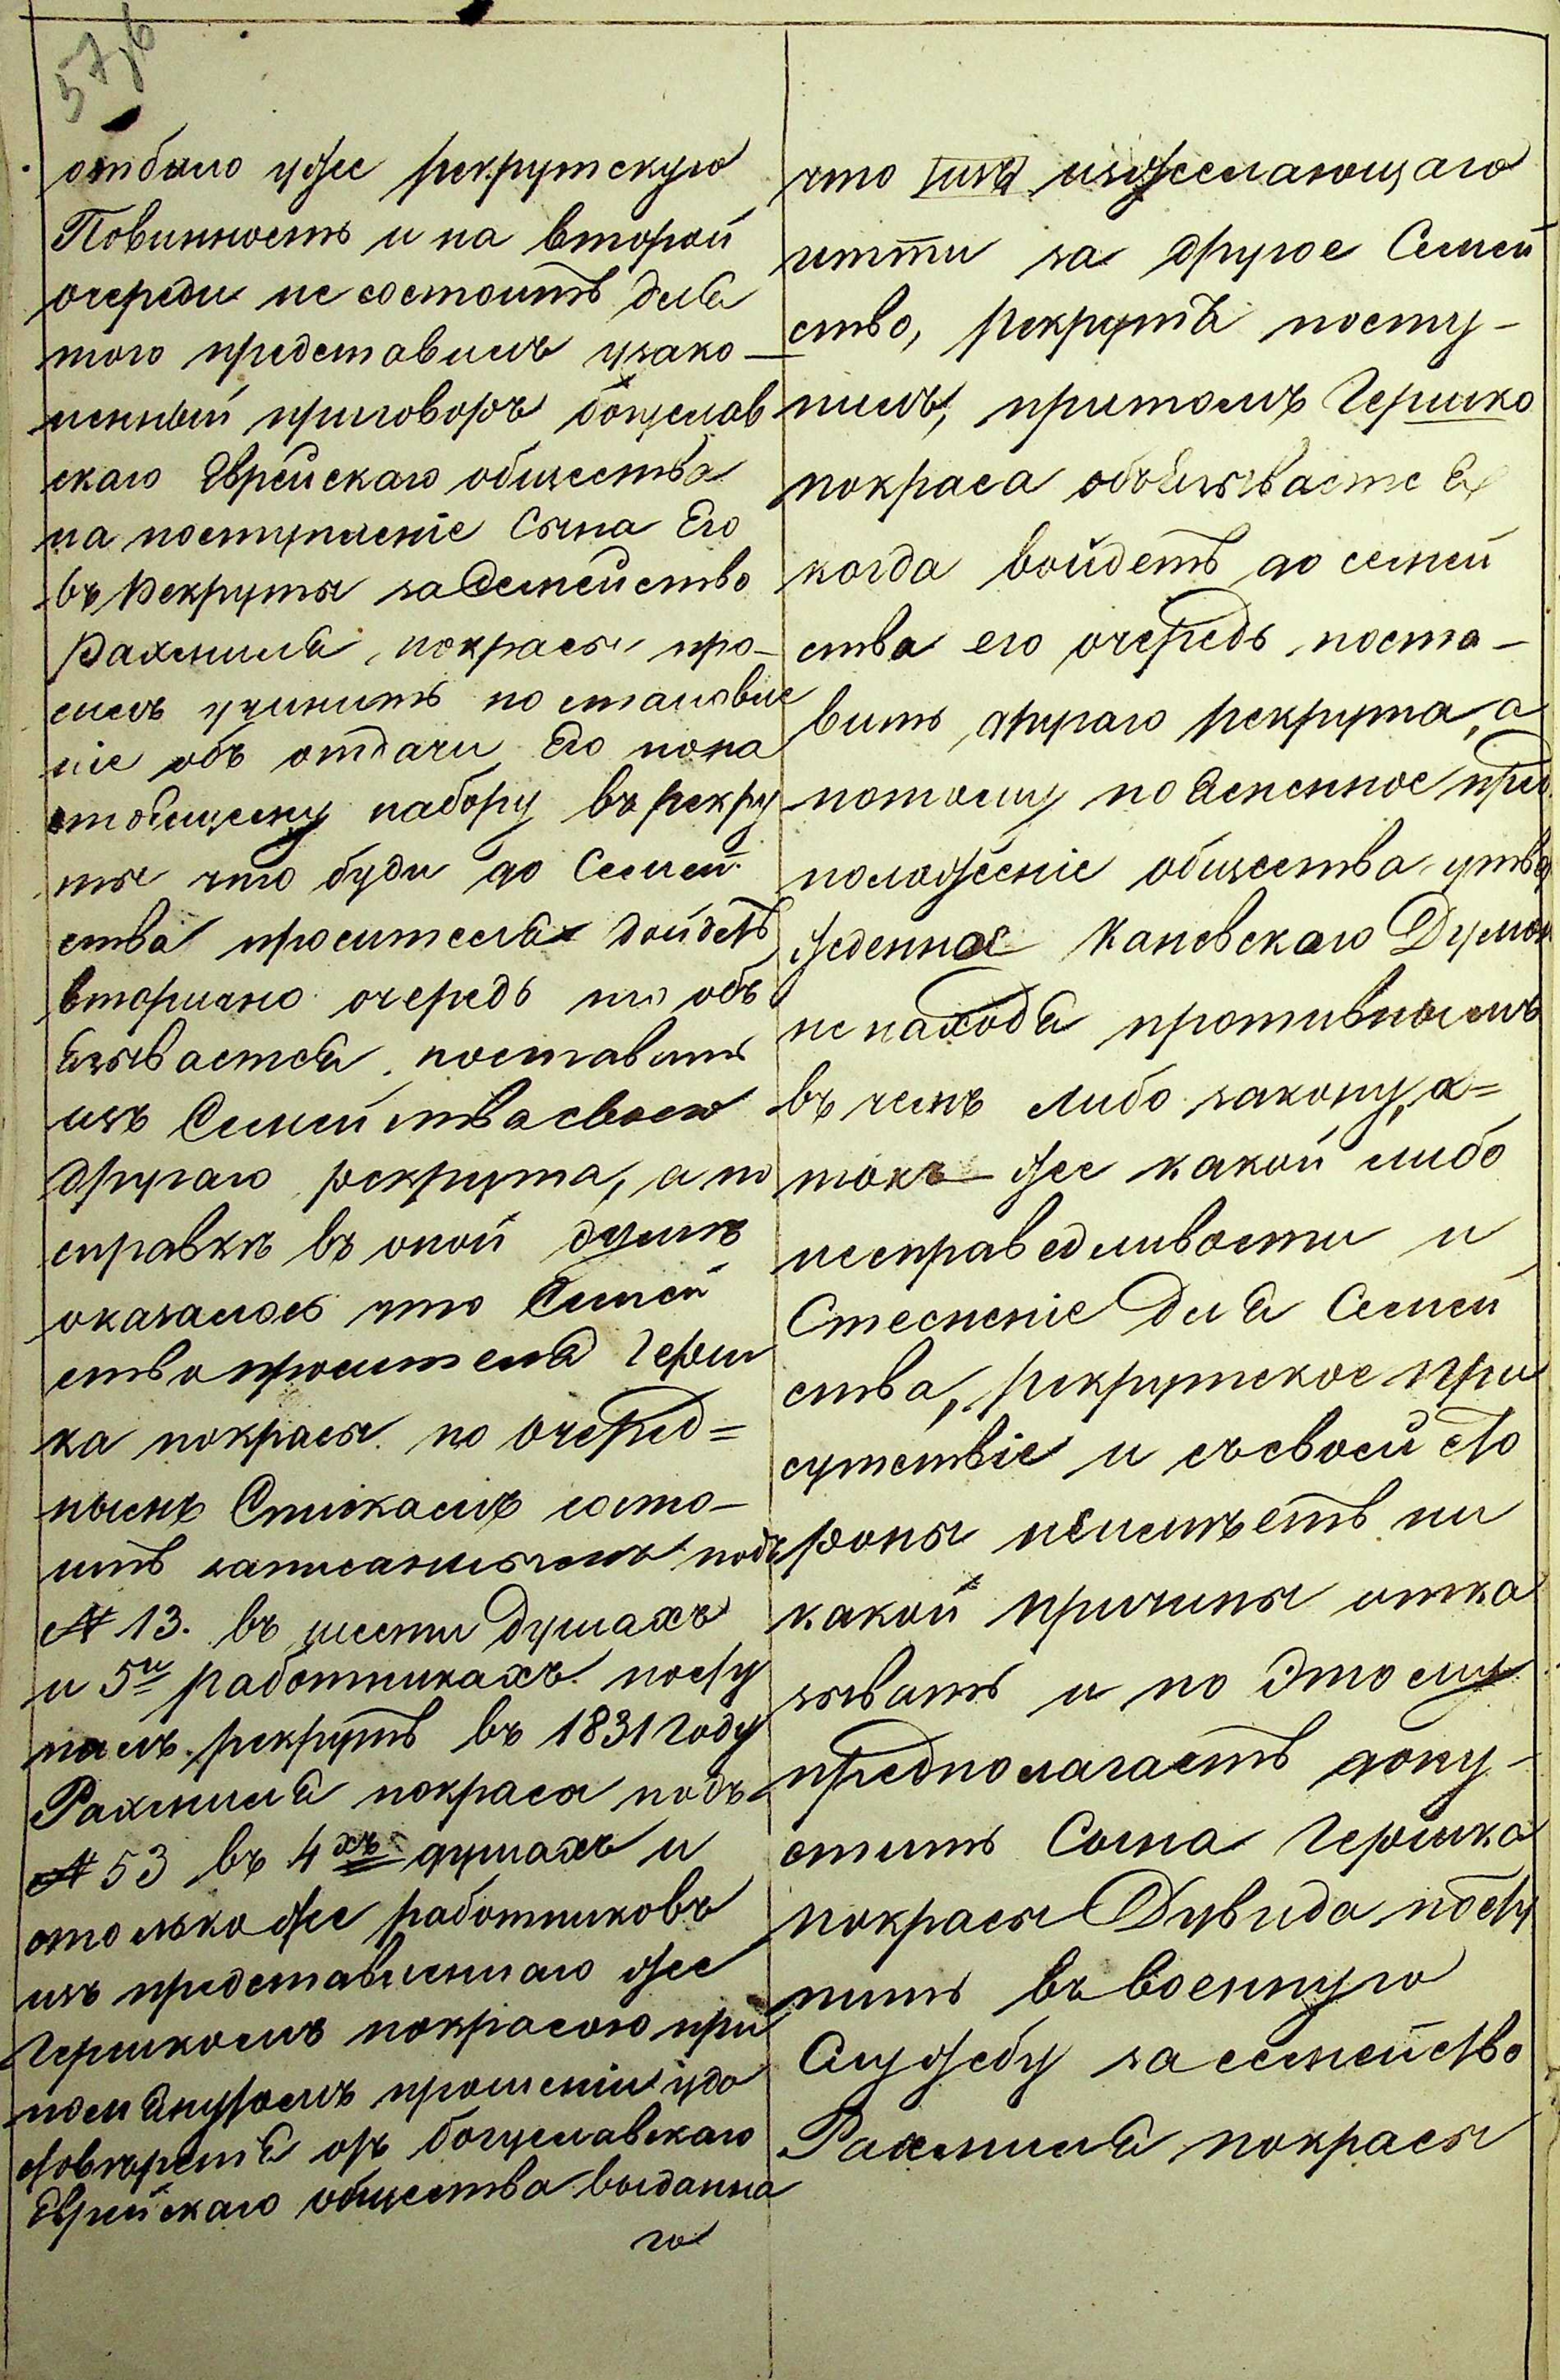 57,6
отбыло уже рекрутскую
Повинность и на второй
очереди не состоитъ для
того представилъ узако-
ненный приговоръ богуслав
скаго Еврейскаго общества
на поступленіе Сына Его
въ Рекруты за Семейство
Рахмиля покрасы про-
силъ учинить постановле
ніе объ отдачи Его по на
стоящему набору въ рекру
ты что буди до Семей
ства просителя дойдетъ
вторично очередь то объ
язывается поставить
изъ Семейства своего
другаго рекрута, а по
справкѣ въ оной думѣ
оказалось что Семей
ство просителя Герш
ка покрасы по очеред=
нымъ Спискамъ состо-
итъ записаннымъ подъ
№ 13. въ шести душахъ
и 5и работникахъ посту
палъ рекрутъ въ 1831 году
Рахмиля покраса подъ
№ 53 въ 4хъ душахъ и
столько же работниковъ
изъ представленнаго же
Гершкомъ покрасою при
помянутомъ прошеніи удо
стовѣренія отъ богуславскаго
Еврейскаго общества выданна
го
что изжелающаго
итти за другое Семей
ство, рекрутъ посту-
пилъ, притомъ Гершко
покраса объязывается
когда войдетъ до семей
ства его очередь поста-
вить другаго рекрута, а
потому поясненное пред
положеніе общества утвер
жденное Каневскаго Думою
не находя противнымъ
въ чемъ либо закону, а=
такъ-же какой либо
несправедливости и
Стесненіе для Семей
ства, рекрутское при
сутствіе и съ своей сто
роны неимѣетъ ни
какой причины отка
зывать и по Этому
предполагаетъ допу-
стить Сына Гершка
покрасы Дувида посту
пить въ военную
Службу за семейство
Рахмиля покрасы